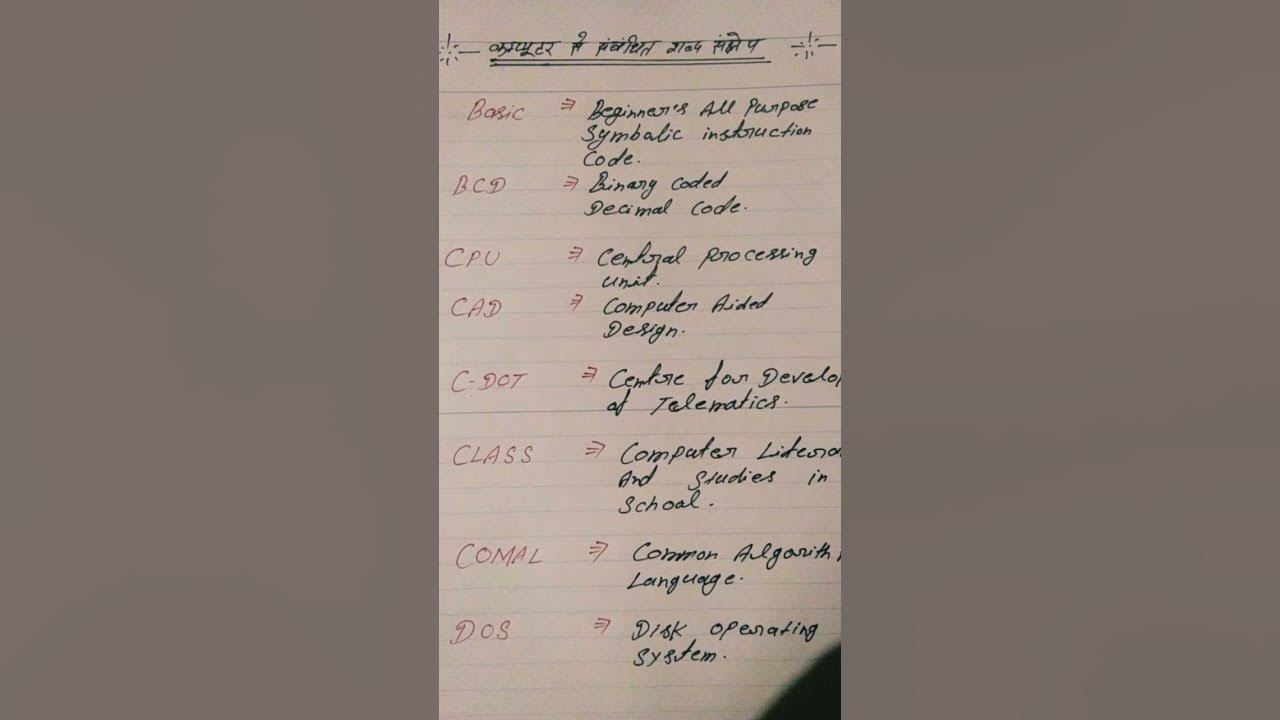 कम्प्यूटर से संबंधित शब्द संक्षेप
Basic ⇒ Beginner's All Purpose
Symbalic instruction
Code.
BCD ⇒ Binary Coded
Decimal Code.
CPU ⇒ Central Processing
unit.
CAD ⇒ Computer Aided
Design.
C-DOT ⇒ Centre for Develo
of Telematics.
CLASS ⇒ Computer Litera
And Studies in
School.
COMAL ⇒ Common Algorith
Language.
DOS ⇒ Disk operating
System.